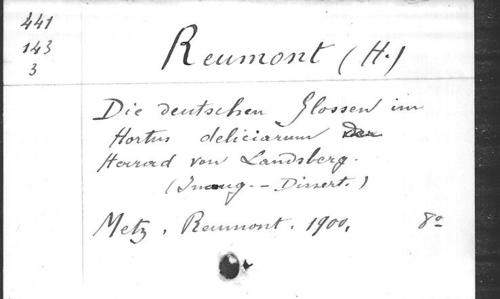 441
143
3
Reumont (H.)
Die deutschen Glossen im
Hortus deliciarum der
Herrad von Landsberg.
(Inaug. - Dissert.)
Metz, Reumont, 1900, 8º